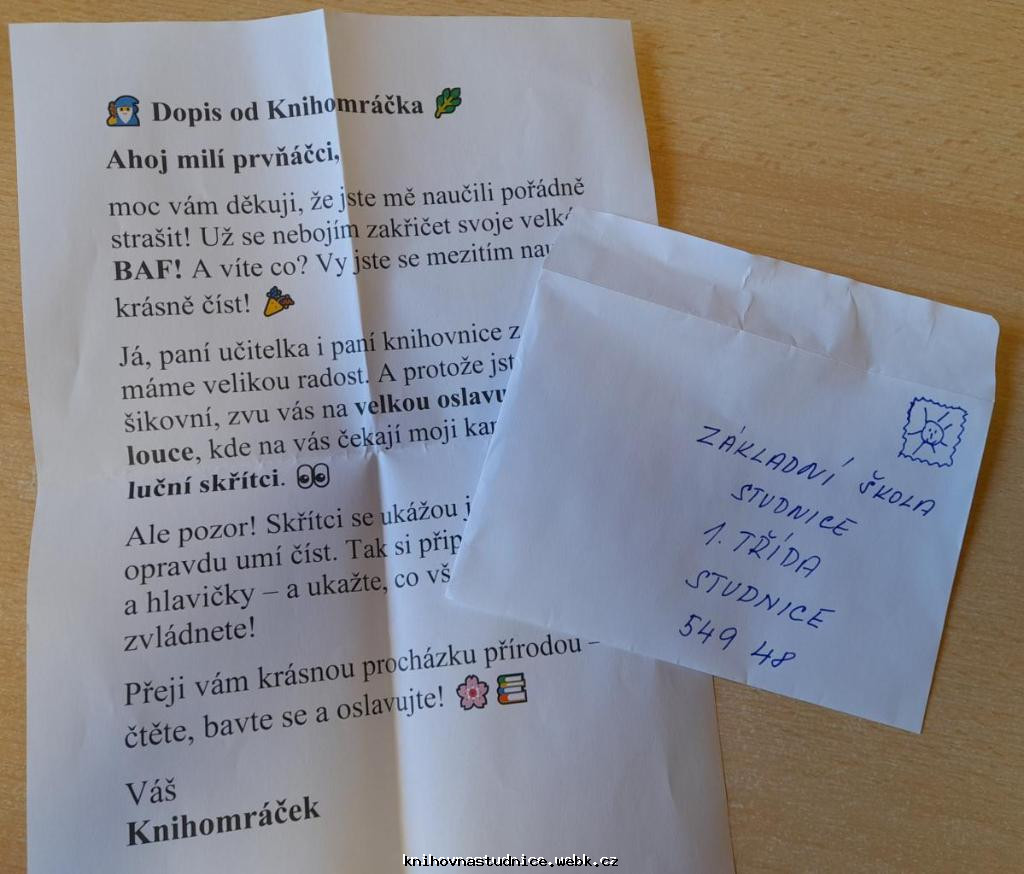 Dopis od Knihomráčka
Ahoj milí prvňáčci,
moc vám děkuji, že jste mě naučili pořádně
strašit! Už se nebojím zakřičet svoje velké
BAF! A víte co? Vy jste se mezitím
krásně číst!
Já, paní učitelka i paní knihovnice
máme velikou radost. A protože
šikovní, zvu vás na velkou oslavu
louce, kde na vás čekají moji
luční skřítci.
Ale pozor! Skřítci se ukážou
opravdu umí číst. Tak si
a hlavičky – a ukažte, co
zvládnete!
Přeji vám krásnou procházku přírodou –
čtěte, bavte se a oslavujte!
Váš
Knihomráček
ZÁKLADNÍ ŠKOLA
STUDNICE
1. TŘÍDA
STUDNICE
549 48
knihovnastudnice.webk.cz